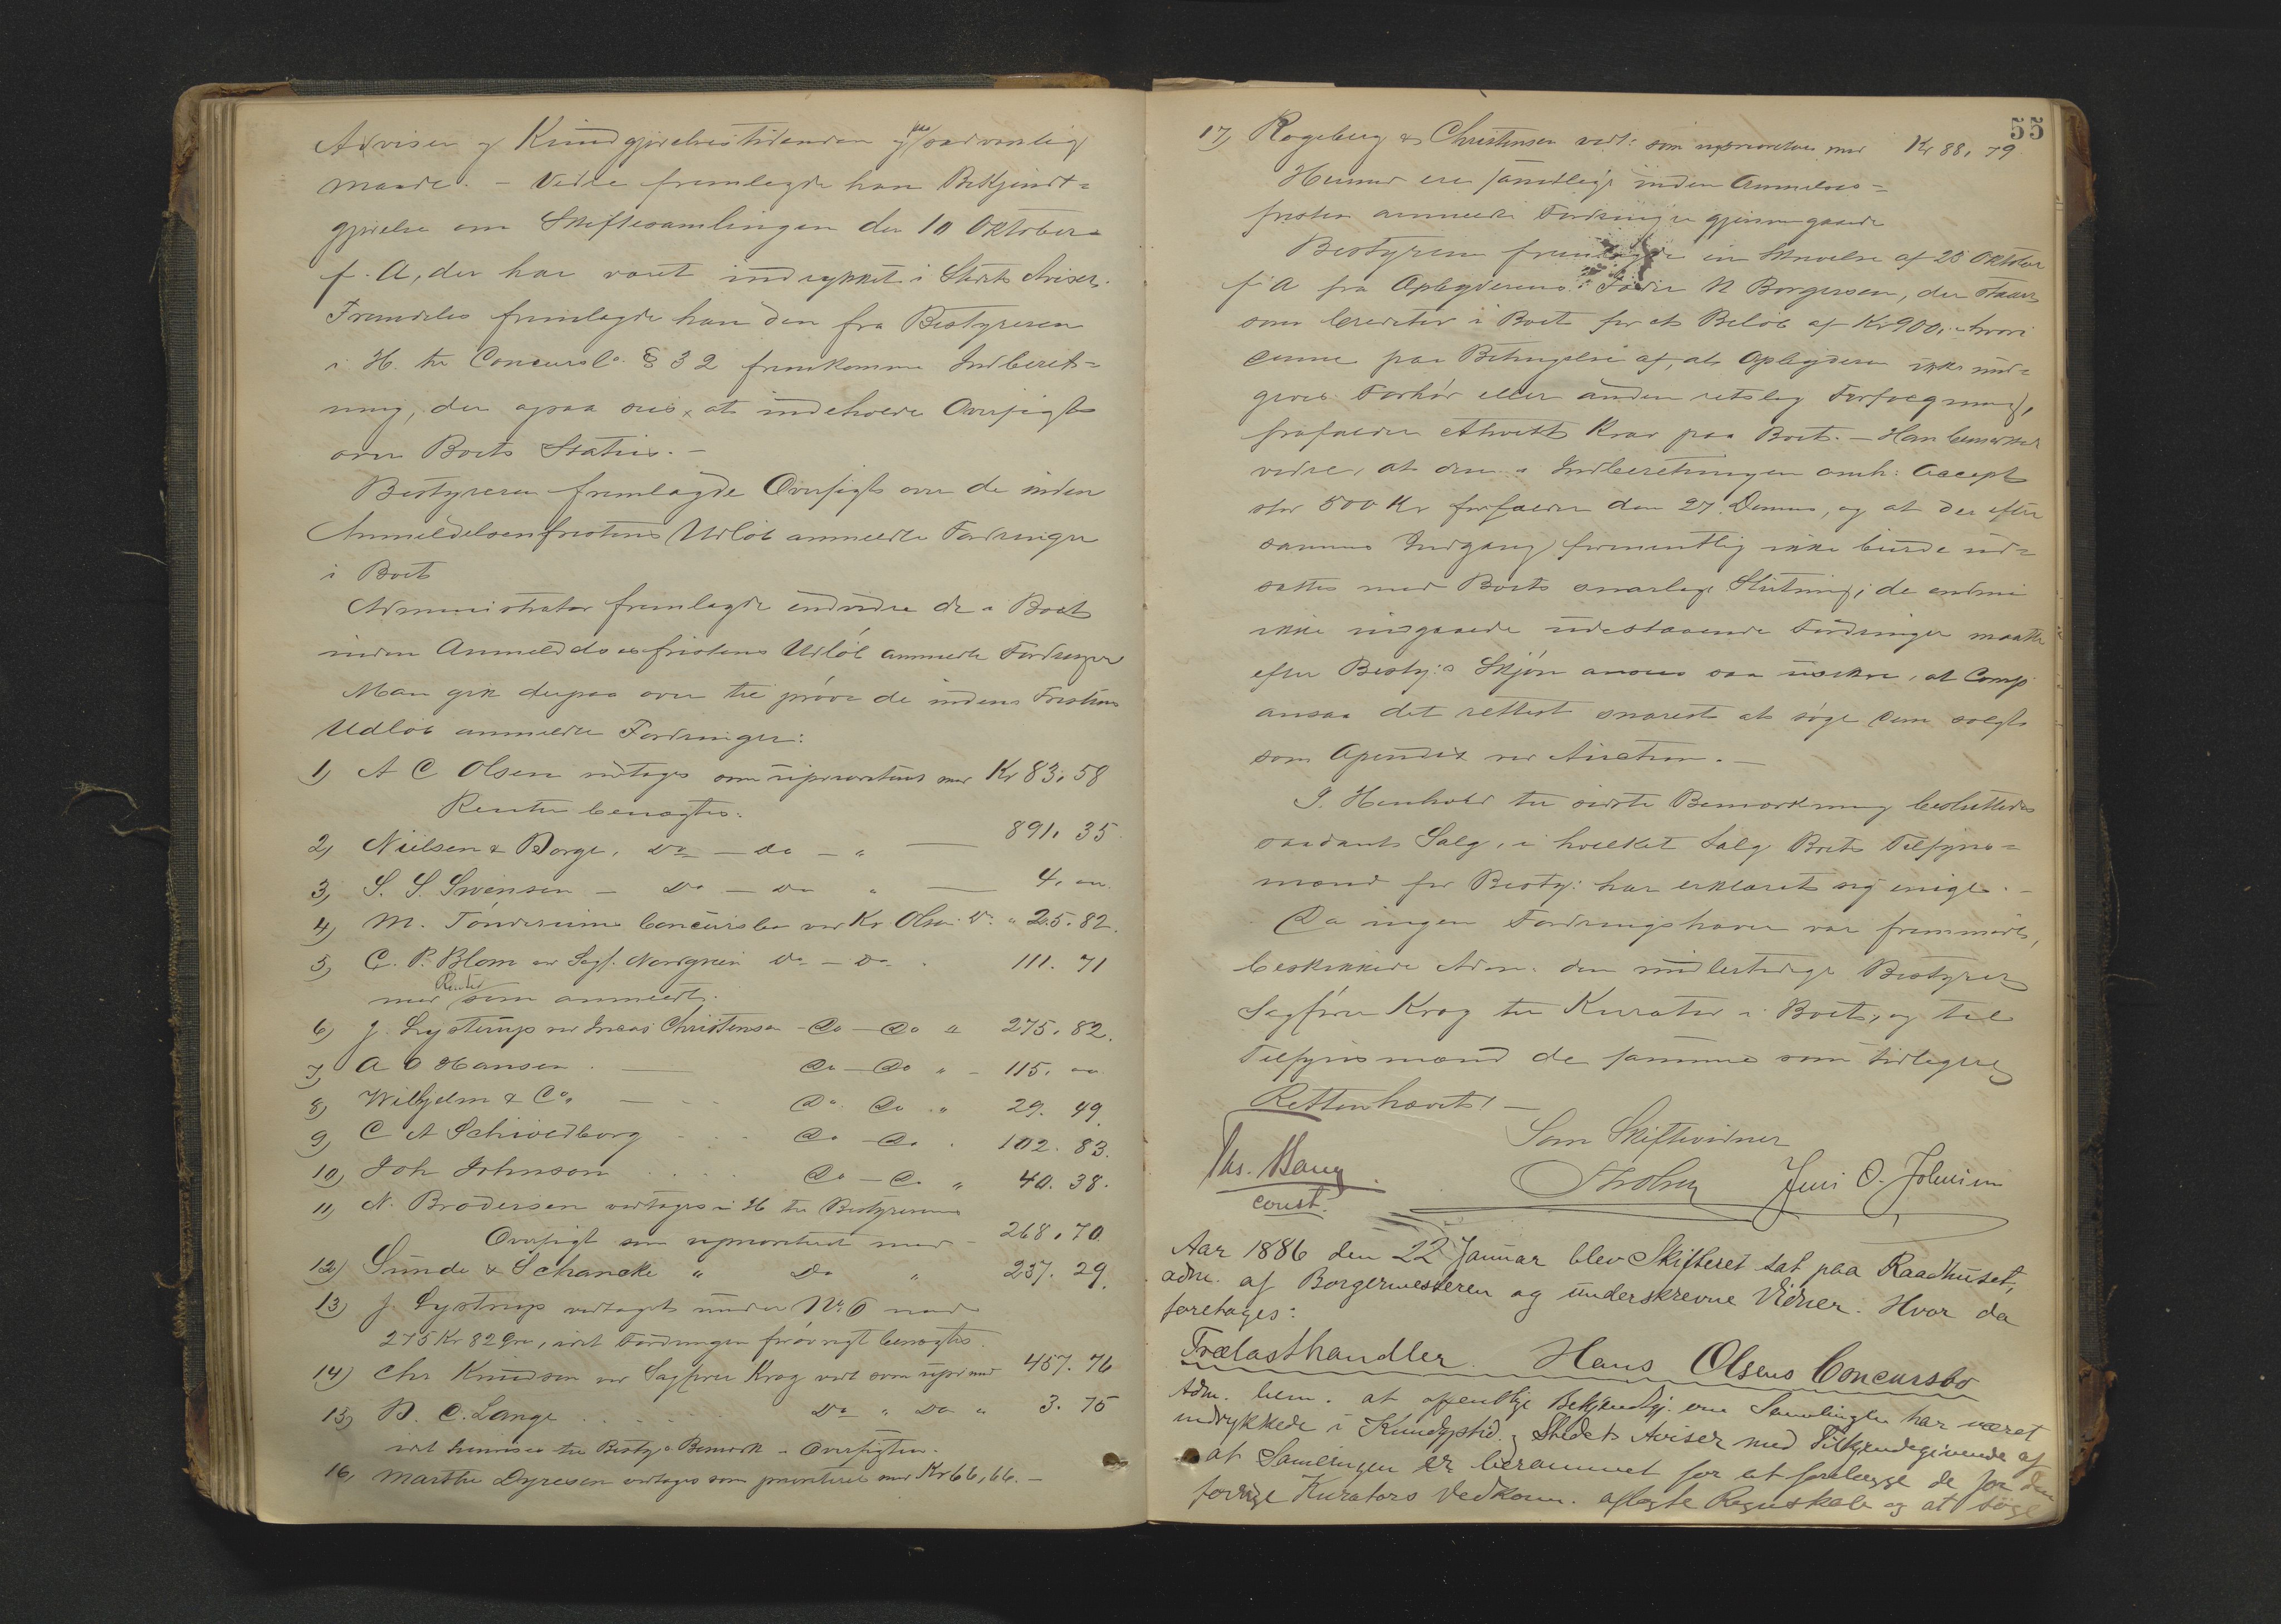 Aviser og Kundgjørelsestidenden og paa sædvanlig
Maade. - Videre fremlagde han Bekjendt=
gjørelse om Skiftesamlingen den 10 Oktober
f. A, der har været indrykket i Stedets Aviser.
Fremdeles fremlagde han den fra Bestyreren
i H. til Concursl. § 32 fremkomne Indberet=
ning, der ogsaa sees at indeholde Oversigt
over Boets Status. -
Bestyreren fremlagde Oversigt over de inden
Anmeldelsesfristens Udløb anmeldte Fordringer
i Boet
Administrator fremlagde endvidere de i Boet
inden Anmeldelsesfristens Udløb anmeldte Fordringer
Man gik derpaa over til prøve de inden Fristens
Udløb anmeldte Fordringer:
1) A C Olsen vedtages som uprioriteret med Kr 83,58
Renter benægtes.
2) Nielsen & Borge, Do - do - " 891,35
3) S. S. Svensen - Do - do " 4,00
4) M. Tønderums Concursbo ved Kr Olsen Do " 25.82.
5) C. P. Blom ved Sagf. Nordgreen Do - Do 111.71
med Renter som anmeldt.
6) J. Lystrup ved Christensen - Do - Do " 275.82.
7) A O Hansen Do - Do " - 115,00
8) Wilhjelm & Co. Do Do " 29.49
9) C A Schiødborg Do - Do 102.83.
10) Joh Johnson Do - Do " 40.38.
11) N. Brodersen vedtages i H til Bestyrerens
Oversigt som uprioriteret med - 268,70
12) Sunde & Schancke " Do " 237.29.
13) J. Lystrup vedtaget under No 6 med
275 Kr 82 Øre, idet Fordringen forøvrigt benægtes.
14) Chr Knudsen ved Sagfører Krog vedt som upr med 457.76
15) B. C. Lange Do " Do " 3.75
idet henvises til Besty's Bemærk. i Oversigten.
16, Marthe Dyresen vedtages som prioriteret med Kr 66,66. -
55
17) Rogeberg & Christensen vedt: som uprioriteret med Kr 88,79
Hermed ere samtlige inden Anmeldelses=
fristen anmeldte Fordringer gjennemgaaede
Bestyreren fremlagde en Skrivelse af 25 Oktober
f. A fra Opbyderens Fader N Borgersen, der staaer
som Creditor i Boet for et Beløb af Kr 900,- hvori
denne paa Betingelse af, at Opbyderen ikke und=
gives Forhør eller anden retslig Forfølgning,
frafalder ethvert Krav paa Boet. - Han bemærkede
videre, at den i Indberetningen omh: Accept
stor 500 Kr forfalder den 27. Dennes, og at der efter
sammes Indgang formentlig ikke burde ud=
sættes med Boets snarlige Slutning; de endnu
ikke indgaaede udestaaende Fordringer maatte
efter Besty:s Skjøn ansees saa usikre, at Comp.
ansaa det rettest snarest at søge dem solgt
som Apendix ved Auction. -
I Henhold til sidste Bemærkning besluttedes
saadant Salg, i hvilket Salg Boets Tilsyns=
mænd for Besty: har erklæret sig enige. -
Da ingen Fordringshaver var fremmødt,
beskikkede Adm. den midlertidige Bestyrer
Sagfører Krog til Kurator i Boet, og til
Tilsynsmænd de samme som tidligere
Retten hævet! -
Som Skiftevidner
Chs. Bang
const.
Jens O. Johnsen
Aar 1886 den 22 Januar blev Skifteret sat paa Raadhuset,
adm. af Borgermesteren og underskrevne Vidner. Hvor da
foretages:
Trælasthandler Hans Olsens Concursbo
Adm. bem. at offentlige Bekjendtgj. om Samlingen har været
indrykkede i Kundgjtid. og Stedets Aviser med Tilkjendegivende af
at Samlingen er berammet for at forelægge de for den
forrige Kurators Vedkom. aflagte Regnskab og at søge